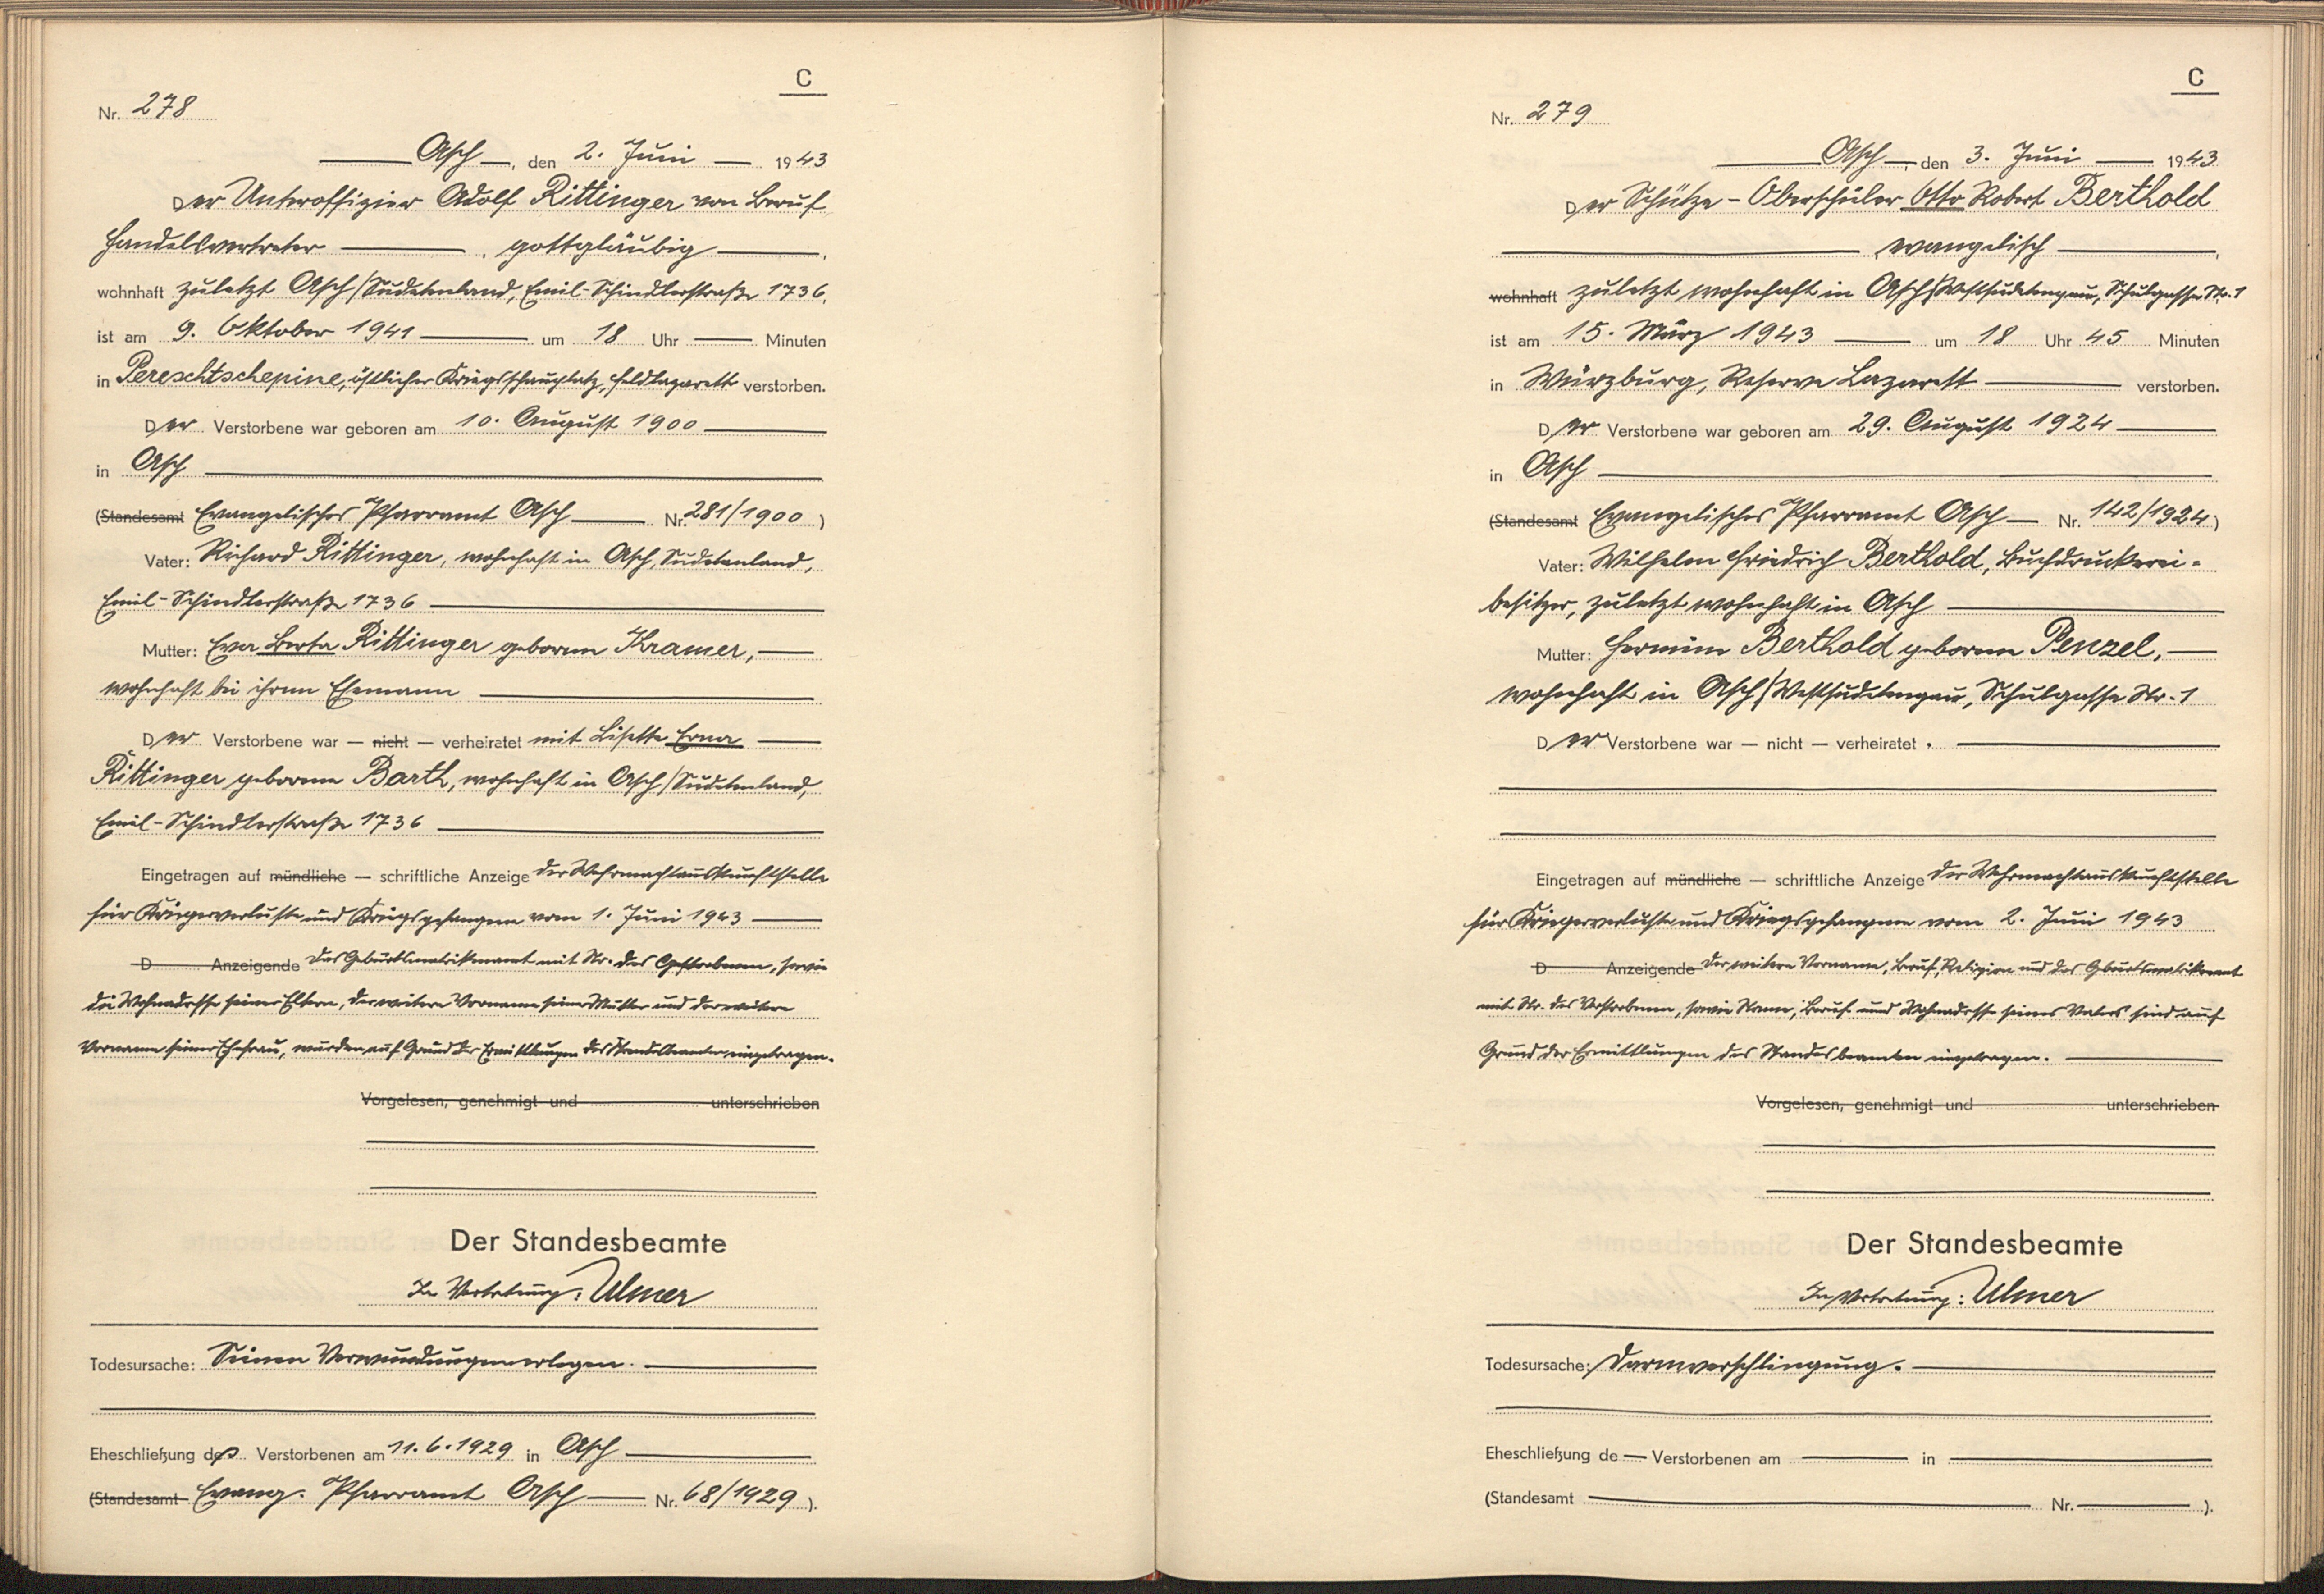 C
Nr. 278
Asch, den 2. Juni 1943
Der Unteroffizier Adolf Rittinger von Beruf
Handelsvertreter, gottgläubig,
wohnhaft zuletzt Asch/Sudetenland, Emil-Schindlerstraße 1736,
ist am 9. Oktober 1941 um 18 Uhr Minuten
in Pereschtschepine, östlicher Kriegsschauplatz, Feldlazarett verstorben.
Der Verstorbene war geboren am 10. August 1900
in Asch
(Standesamt Evangelisches Pfarramt Asch Nr. 281/1900)
Vater: Richard Rittinger, wohnhaft in Asch, Sudetenland,
Emil-Schindlerstraße 1736
Mutter: Eva Berta Rittinger geborene Kramer,
wohnhaft bei ihrem Ehemann
Der Verstorbene war — nicht — verheiratet mit Lisette Erna
Rittinger geborene Barth, wohnhaft in Asch/Sudetenland,
Emil-Schindlerstraße 1736
Eingetragen auf mündliche — schriftliche Anzeige der Wehrmachtauskunftstelle
für Kriegerverluste und Kriegsgefangene vom 1. Juni 1943
D Anzeigende Das Geburtsmatrikenamt mit Nr. des Verstorbenen, sowie
die Wohnadresse seiner Eltern, der weitere Vorname seiner Mutter und der weitere
Vorname seiner Ehefrau, wurden auf Grund der Ermittlungen des Standesbeamten eingetragen.
Vorgelesen, genehmigt und unterschrieben
Der Standesbeamte
In Vertretung: Ulmer
Todesursache: Seinen Verwundungen erlegen.
Eheschließung des Verstorbenen am 11.6.1929 in Asch
(Standesamt Evang. Pfarramt Asch Nr. 68/1929).
C
Nr. 279
Asch, den 3. Juni 1943
Der Schütze - Oberschüler Otto Robert Berthold
, evangelisch,
wohnhaft zuletzt wohnhaft in Asch/Westsudetengau, Schulgasse Nr. 1
ist am 15. März 1943 um 18 Uhr 45 Minuten
in Würzburg, Reserve Lazarett verstorben.
Der Verstorbene war geboren am 29. August 1924
in Asch
(Standesamt Evangelisches Pfarramt Asch Nr. 142/1924)
Vater: Wilhelm Friedrich Berthold, Buchdruckerei-
besitzer, zuletzt wohnhaft in Asch
Mutter: Hermine Berthold geborene Penzel,
wohnhaft in Asch/Westsudetengau, Schulgasse Nr. 1
Der Verstorbene war — nicht — verheiratet.
Eingetragen auf mündliche — schriftliche Anzeige der Wehrmachtauskunftstelle
für Kriegerverluste und Kriegsgefangene vom 2. Juni 1943
D Anzeigende Der weitere Vorname, Beruf, Religion und das Geburtsmatrikenamt
mit Nr. des Verstorbenen, sowie Name, Beruf und Wohnadresse seines Vaters sind auf
Grund der Ermittlungen des Standesbeamten eingetragen.
Vorgelesen, genehmigt und unterschrieben
Der Standesbeamte
In Vertretung: Ulmer
Todesursache: Darmverschlingung.
Eheschließung de Verstorbenen am in
(Standesamt Nr. ).